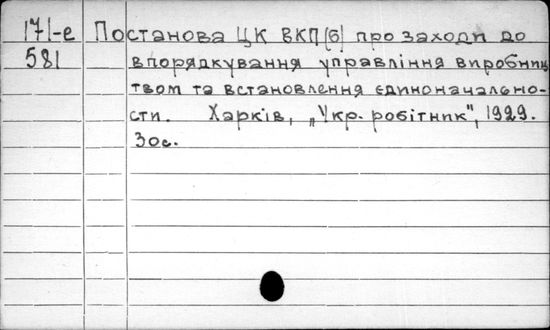 171-е Постанова ЦК ВКП(б) про заходи до
581 впорядкування управління виробниц
твом та встановлення єдиноначально-
сти. Харків, „Укр. робітник", 1929.
30с.